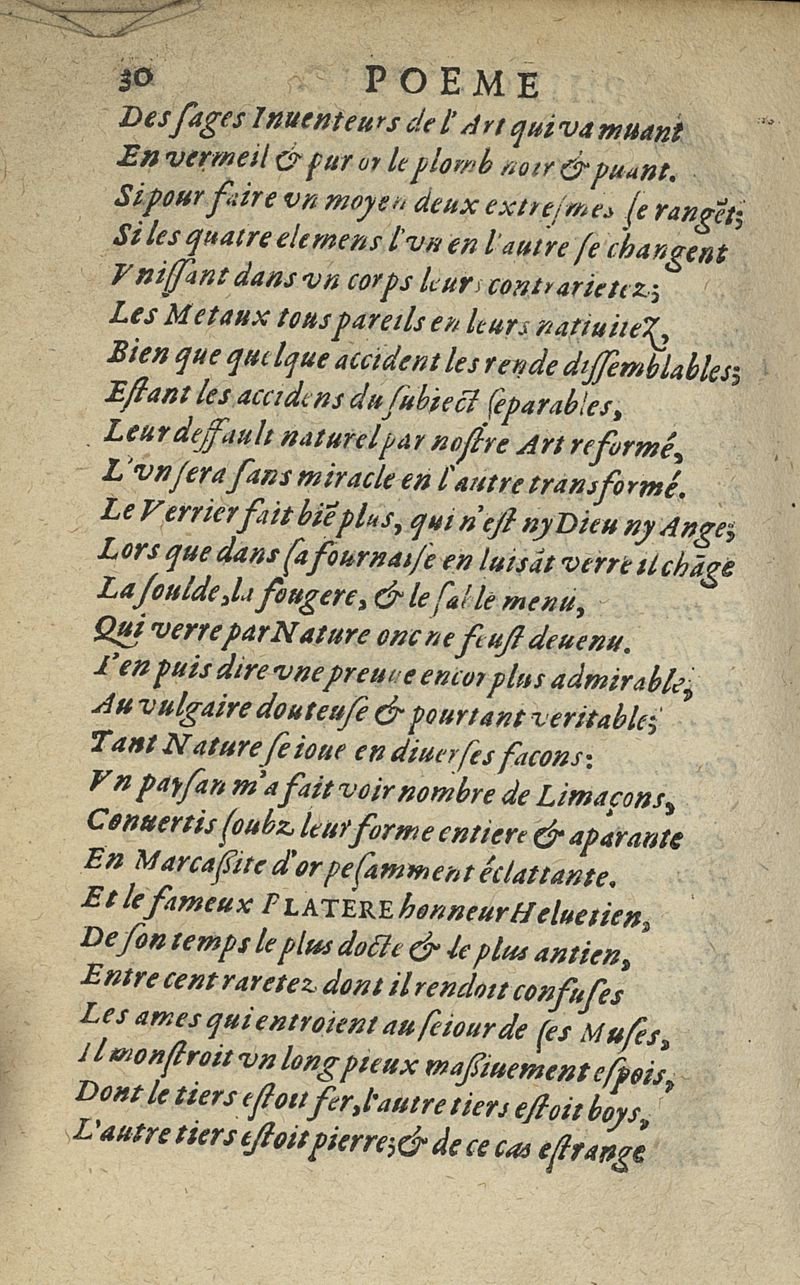 30 POEME
Des ſages Inuenteurs de l'Art qui va muant
En vermeil & pur or le plomb noir & puant.
Si pour faire vn moyen deux extreſmes ſe rangẽt;
Si les quatre elemens l'vn en l'autre ſe changent
Vniſſant dans vn corps leurs contrarietez;
Les Metaux tous pareils en leurs natiuitez,
Bien que quelque accident les rende diſſemblables;
Eſtant les accidens du ſubiect ſeparables,
Leur deffault naturel par noſtre Art reformé,
L'vn ſera ſans miracle en l'autre transformé.
Le Verrier fait biẽ plus, qui n'eſt ny Dieu ny Ange;
Lors que dans ſa fournaiſe en luisãt verre il chãge
La ſoulde, la fougere, & le ſable menu,
Qui verre par Nature onc ne feuſt deuenu.
I'en puis dire vne preuue encor plus admirable,
Au vulgaire douteuſe & pourtant veritable;
Tant Nature ſe ioue en diuerſes facons:
Vn payſan m'a fait voir nombre de Limaçons,
Conuertis ſoubz leur forme entiere & aparante
En Marcaßite d'or peſamment éclattante.
Et le fameux PLATERE honneur Heluetien,
De ſon temps le plus docte & le plus antien,
Entre cent raretez dont il rendoit confuſes
Les ames qui entroient au ſeiour de ſes Muſes,
Il monſtroit vn long pieux maßiuement eſpois,
Dont le tiers eſtoit fer, l'autre tiers eſtoit boys,
L'autre tiers eſtoit pierre; & de ce cas eſtrange